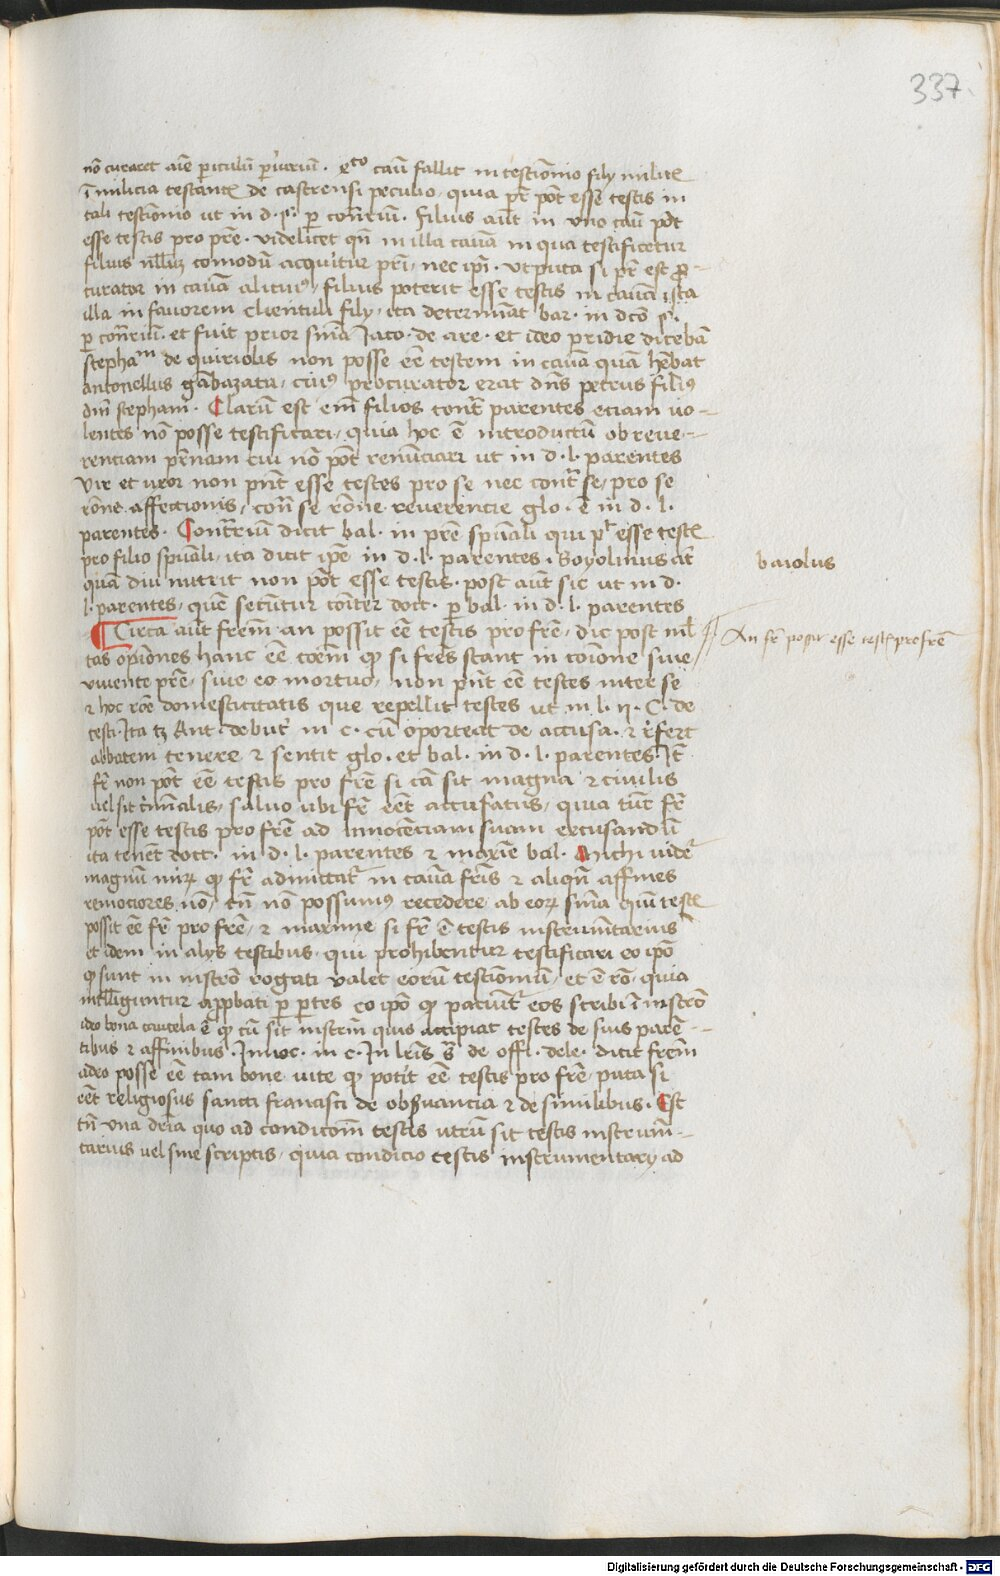 337
nō curaret aīe periculū periurii. 2to caū fallit in testīonio filii milit
ī milicia testant de castrensi peculio, quia pr pōt esse testis in
tali testīonio ut in d. §. per conrīum. filius aūt in uno caū pōt
esse testis pro pre. videlicet qn in illa causa in qua testificetur
filius nulluz comodū acquiritur pri, nec ipi. ut puta si pr est pro-
curator in causa alicuius, filius poterit esse testis in causa ista
illa in favorem clientuli filii, ita determinat bar. in dco §.
per conrīum. et fuit prior snīa Jaco. de are. et ideo pridie dicebā
stephanum de quiriolis non posse eē testem in causa quā hēbat
antonellus gābazata, cuius procurator erat dns petrus filius
dni stephani. Clarū est enī filios contr parentes etiam vo-
lentes nō posse testificari, quia hoc ē introductū ob reve-
rentiam prnam cui nō pōt renūciari ut in d. l. parentes
vir et uxor non pnt esse testes pro se nec contr se, pro se
rōne affectionis, contr se rōne reverencie glo. ē in d. l.
parentes. Contrriū dicit bal. in pre spūali qui pt esse test
pro filio spūali, ita dicit ipe in d. l. parentes. Boyolinus at
quādiu nutrit non pōt esse testis. post aūt sic ut in d.
l. parentes, quē secūntur cōiter doct. per bal. in d. l. parentes
baiolus
Circa aūt frem an possit eē testis pro fre, dic post ml-
An fr possit esse testis pro fre
tas opiōnes hanc eē coēm q si frēs stant in coīone sive
vivente pre, sive eo mortuo, non pnt eē testes inter se
et hoc rōe domesticitatis que repellit testes ut in l. ii. C. de
testi. Ita tz Ant. de butr in c. cū oporteat de accusa. et refert
abbatem tenere et sentit glo. et bal. in d. l. parentes. Itē
fr non pōt eē testis pro fre si cā sit magna et civilis
vel sit criminalis, salvo ubi fr eēt accusatus, quia tūc fr
pōt esse testis pro frē ad innocēciam suam excusandū
ita tenēt doct. in d. l. parentes et maxīe bal. Michi videtr
magnū mirū q fr admittatr in causa fris et aliqn affines
remociores nō, tn nō possumus recedere ab eorū snīa quin test
possit eē fr pro frē, et maxime si fr ē testis instrumētarius
et idem in aliis testibus qui prohibentur testificari eo ipo
q sunt in instrō rogati valet eorū testīoniū, et ē rō, quia
intelliguntur approbati per partes eo ipo q patiūtr eos scribi ī instrō
ideo bona cautela ē q cū sit instrm quis accipiat testes de suis parē-
tibus et affinibus. Innoc. in c. In lris § de offi. dele. dicit frem
adeo posse eē tam bone vite q potit eē testis pro frē, puta si
eēt religiosus sancti francisci de observancia et de similibus. Est
tn una dria quo ad condicōm testis utrū sit testis instrum-
tarius vel sine scriptis, quia condicio testis instrumentarii ad
Digitalisierung gefördert durch die Deutsche Forschungsgemeinschaft - DFG